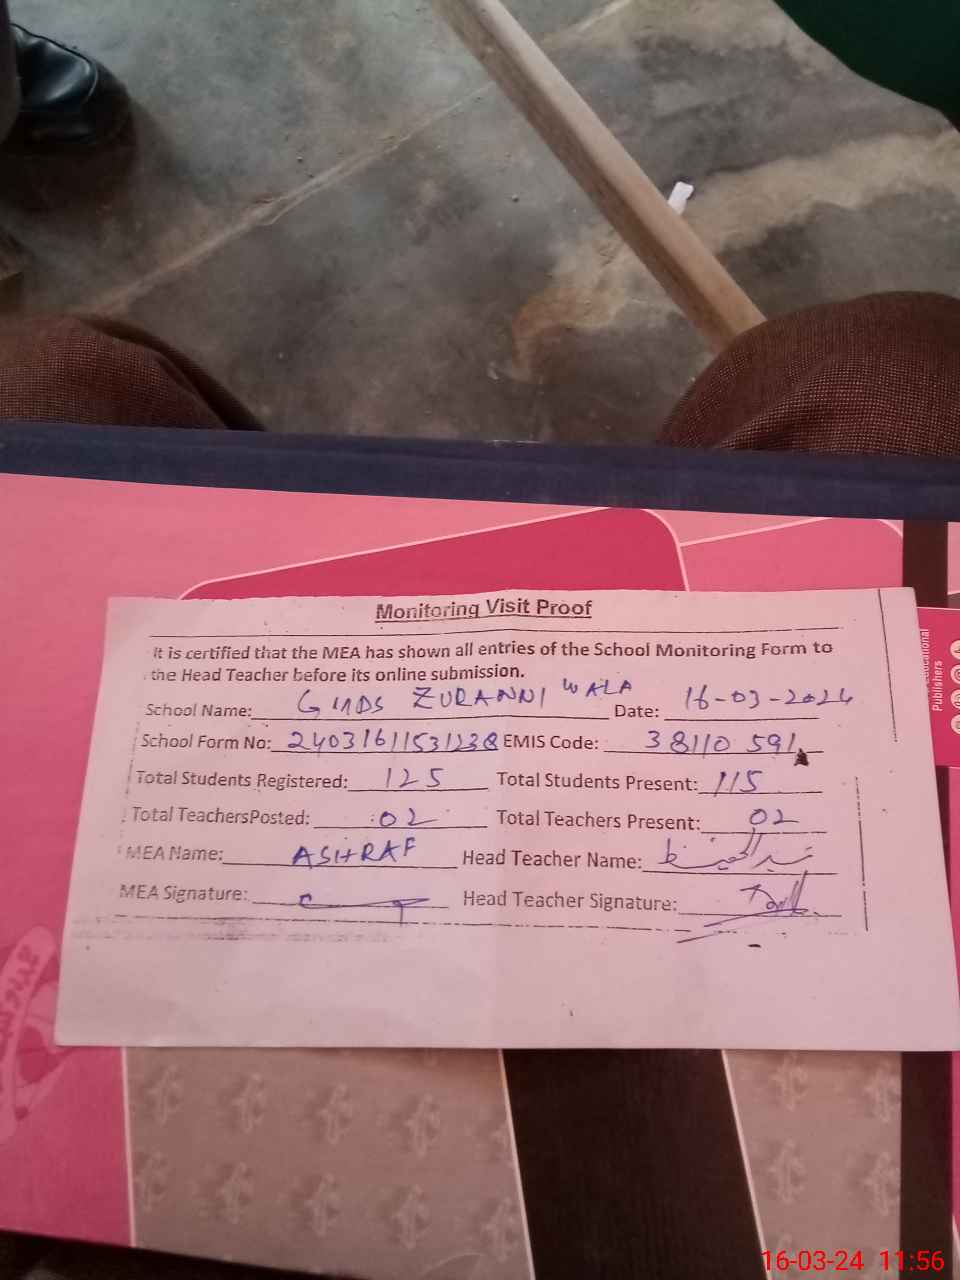 Monitoring Visit Proof
It is certified that the MEA has shown all entries of the School Monitoring Form to
the Head Teacher before its online submission.
School Name: GMDS ZURANNI WALA Date: 16-03-2024
School Form No: EMIS Code: 38110591
Total Students Registered: 125 Total Students Present: 115
Total TeachersPosted: 02 Total Teachers Present: 02
MEA Name: ASHRAF Head Teacher Name:
MEA Signature: Head Teacher Signature:
Educational
Publishers
16-03-24 11:56